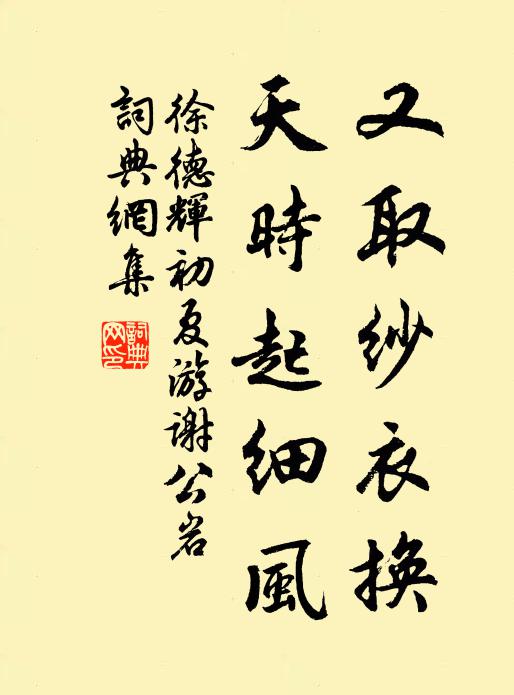 又取紗衣換
天時起細風
徐德輝初夏游謝公岩
詞典網集
詞典
网印